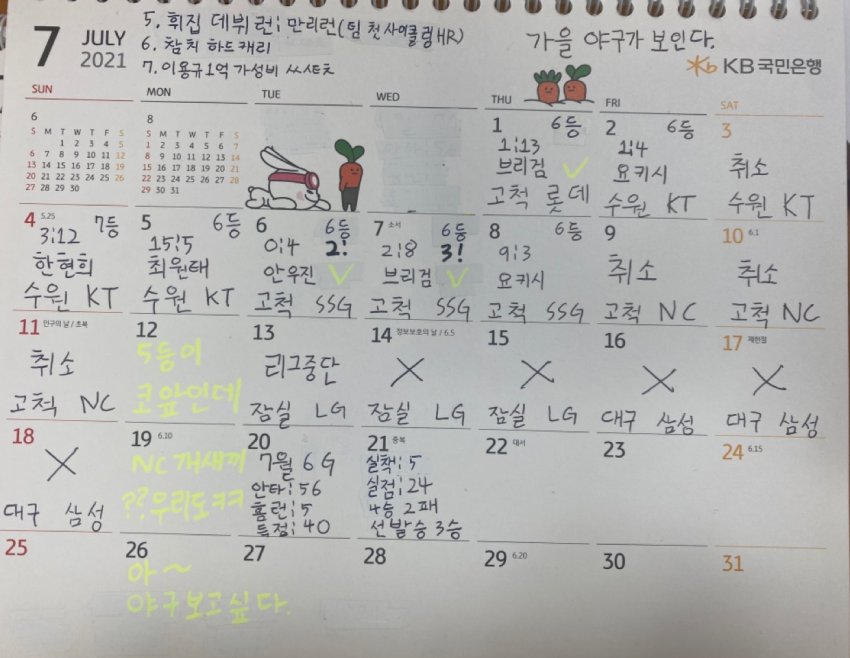 7 JULY 2021
5. 휘집 데뷔 런; 만리런(팀 첫 사이클링 HR)
6. 참치 하드캐리
7. 이용규 1억 가성비
가을 야구가 보인다.
KB국민은행
SUN MON TUE WED THU FRI SAT
6
S M T W T F S
1 2 3 4 5
6 7 8 9 10 11 12
13 14 15 16 17 18 19
20 21 22 23 24 25 26
27 28 29 30
8
S M T W T F S
1 2 3 4 5 6 7
8 9 10 11 12 13 14
15 16 17 18 19 20 21
22 23 24 25 26 27 28
29 30 31
1 6등
1;13
브리검
고척 롯데
2 6등
1;4
요키시
수원 KT
3
취소
수원 KT
4 5.25 7등
3;12
한현희
수원 KT
5 6등
15;5
최원태
수원 KT
6 6등
0;4 2!
안우진
고척 SSG
7 소서 6등
2;8 3!
브리검
고척 SSG
8 6등
9;3
요키시
고척 SSG
9
취소
고척 NC
10 6.1
취소
고척 NC
11 인구의 날 / 초복
취소
고척 NC
12
5등이
코앞인데
13
리그중단
잠실 LG
14 정보보호의 날 / 6.5
잠실 LG
15
잠실 LG
16
대구 삼성
17 제헌절
대구 삼성
18
대구 삼성
19 6.10
NC 개새끼
??우리도ㅋㅋ
20
7월 6G
안타; 56
홈런; 5
득점; 40
21 중복
실책; 5
실점; 24
4승 2패
선발승 3승
22 대서
23
24 6.15
25
26
아~
야구보고싶다.
27
28
29 6.20
30
31